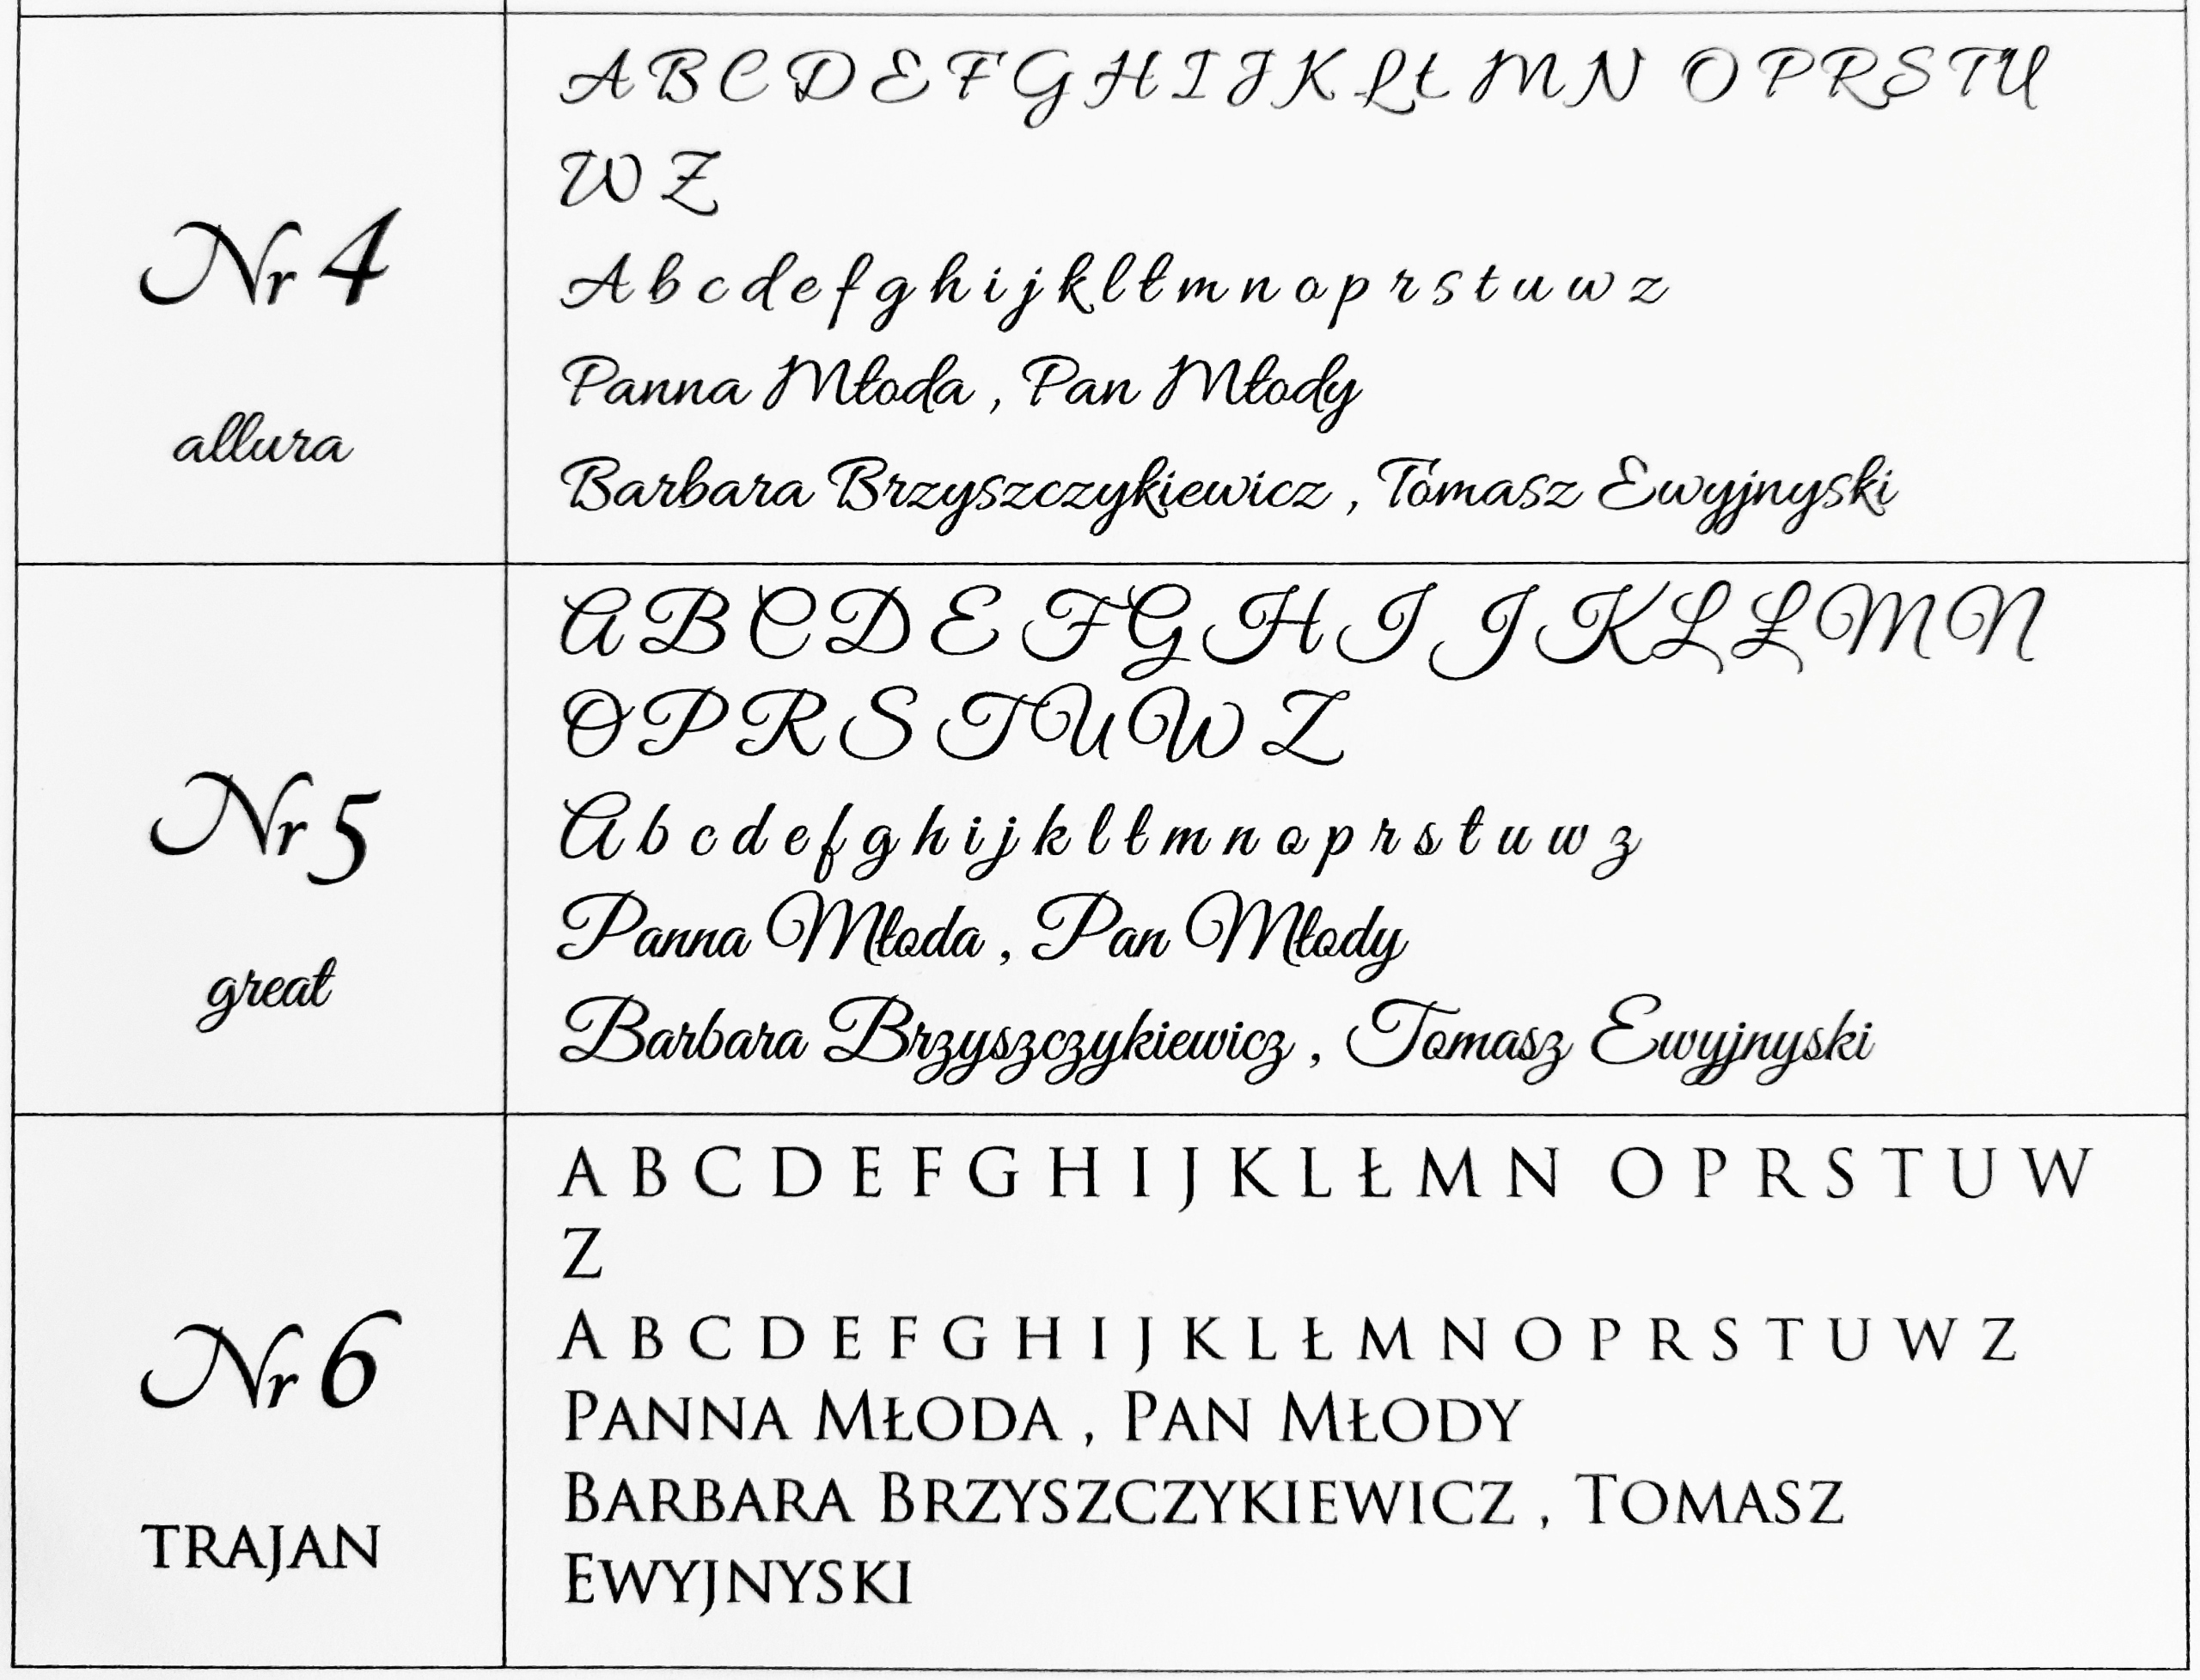 Nr 4
allura
A B C D E F G H I J K L Ł M N O P R S T U
W Z
A b c d e f g h i j k l ł m n o p r s t u w z
Panna Młoda , Pan Młody
Barbara Brzyszczykiewicz , Tomasz Ewyjnyski
Nr 5
great
A B C D E F G H I J K L Ł M N
O P R S T U W Z
A b c d e f g h i j k l ł m n o p r s t u w z
Panna Młoda , Pan Młody
Barbara Brzyszczykiewicz , Tomasz Ewyjnyski
Nr 6
TRAJAN
A B C D E F G H I J K L Ł M N O P R S T U W
Z
A B C D E F G H I J K L Ł M N O P R S T U W Z
PANNA MŁODA , PAN MŁODY
BARBARA BRZYSZCZYKIEWICZ , TOMASZ
EWYJNYSKI